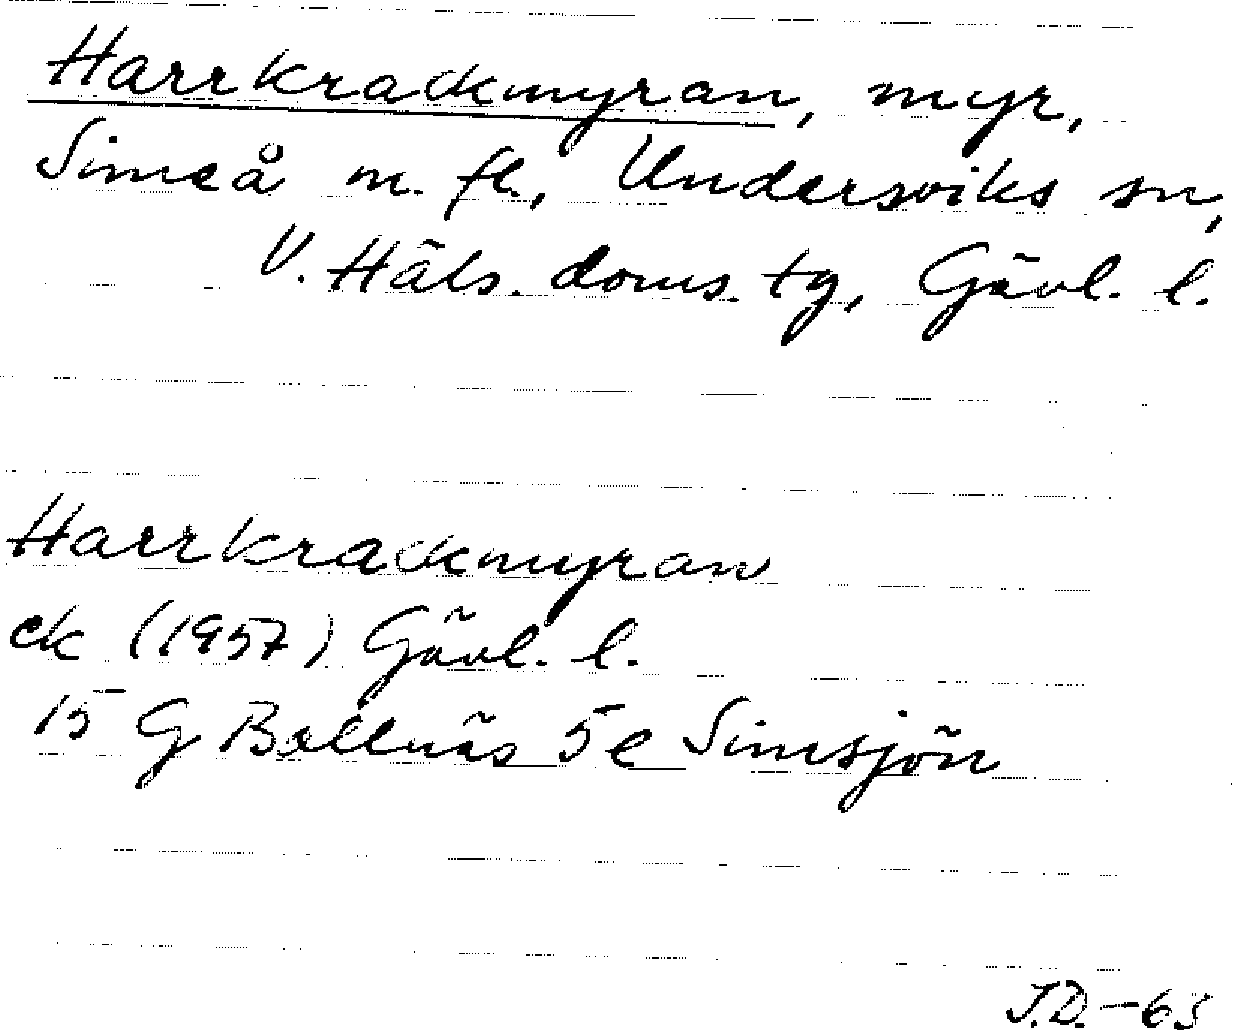 Harrkrackmyran, myr,
Simeå m. fl., Undersviks sn,
V. Häls. doms. tg, Gävl. l.
Harrkrackmyran
ek (1957) Gävl. l.
15 G Bollnäs 5e Simsjön
J.D. -63